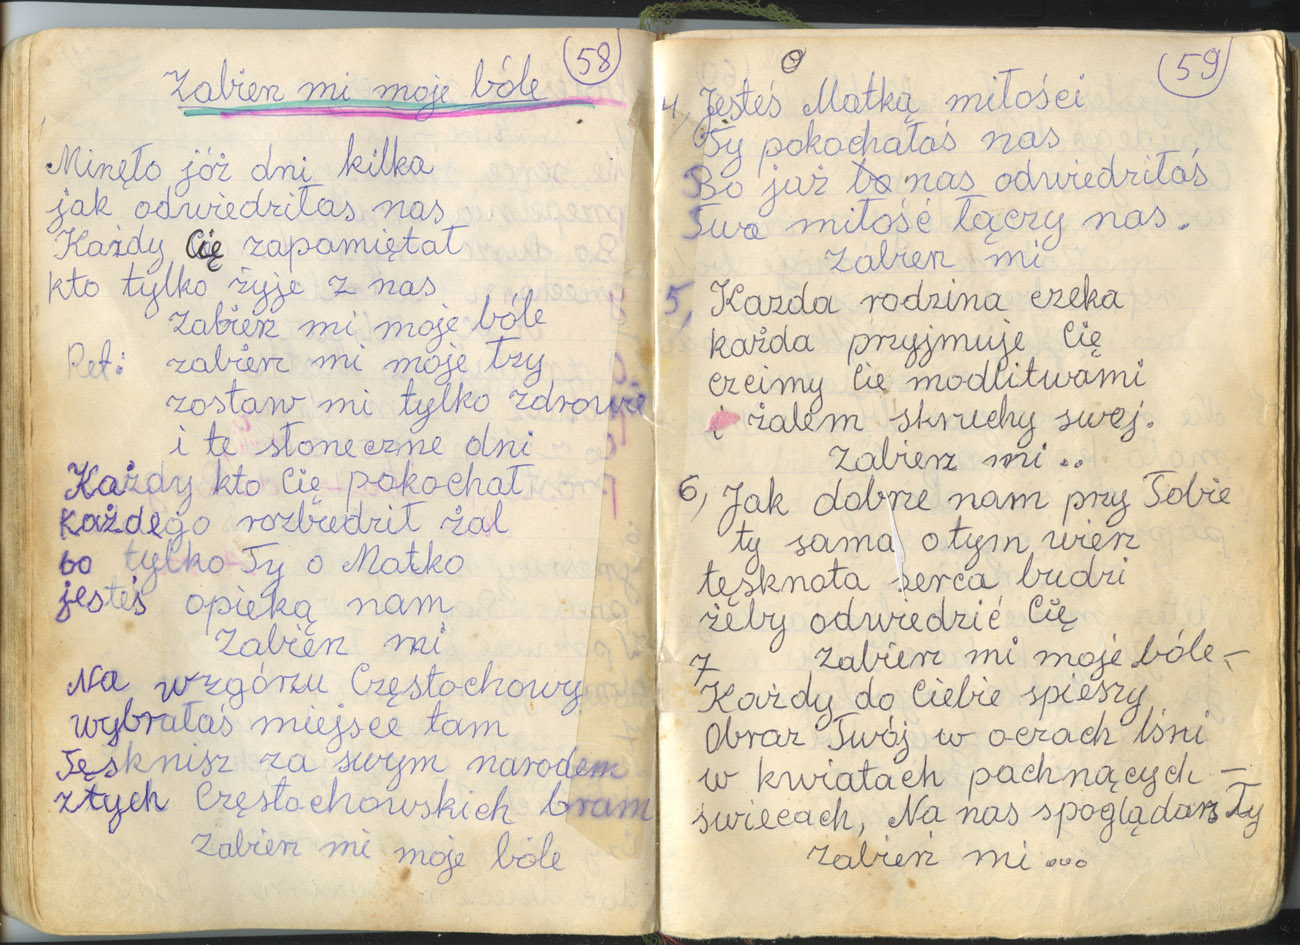 58
Zabierz mi moje bóle
Minęło jóż dni kilka
jak odwiedziłas nas
Każdy Cię zapamiętał
kto tylko żyje z nas
Zabierz mi moje bóle
Ref: zabierz mi moje łzy
zostaw mi tylko zdrowie
i te słoneczne dni
Każdy kto Cię pokochał
każdego rozbiedził żal
bo tylko Ty o Matko
jesteś opieką nam
Zabierz mi
Na wzgórzu Częstochowy
wybrałaś miejsce tam
Tęsknisz za swym narodem
z tych Częstochowskich bram
Zabierz mi moje bóle
59
4, Jesteś Matką miłości
Ty pokochałaś nas
Bo już bo nas odwiedziłaś
Twa miłość łączy nas.
Zabierz mi
5, Każda rodzina czeka
każda przyjmuje Cię
czcimy Cie modlitwami
i żalem skruchy swej.
Zabierz mi ..
6, Jak dobrze nam przy Tobie
ty sama o tym wierz
tęsknota serca budzi
żeby odwiedzić Cię
Zabierz mi moje bóle –
7 Każdy do Ciebie spieszy
Obraz Twój w oczach lśni
w kwiatach pachnących –
świecach, Na nas spoglądarz Ty
Zabierz mi ...